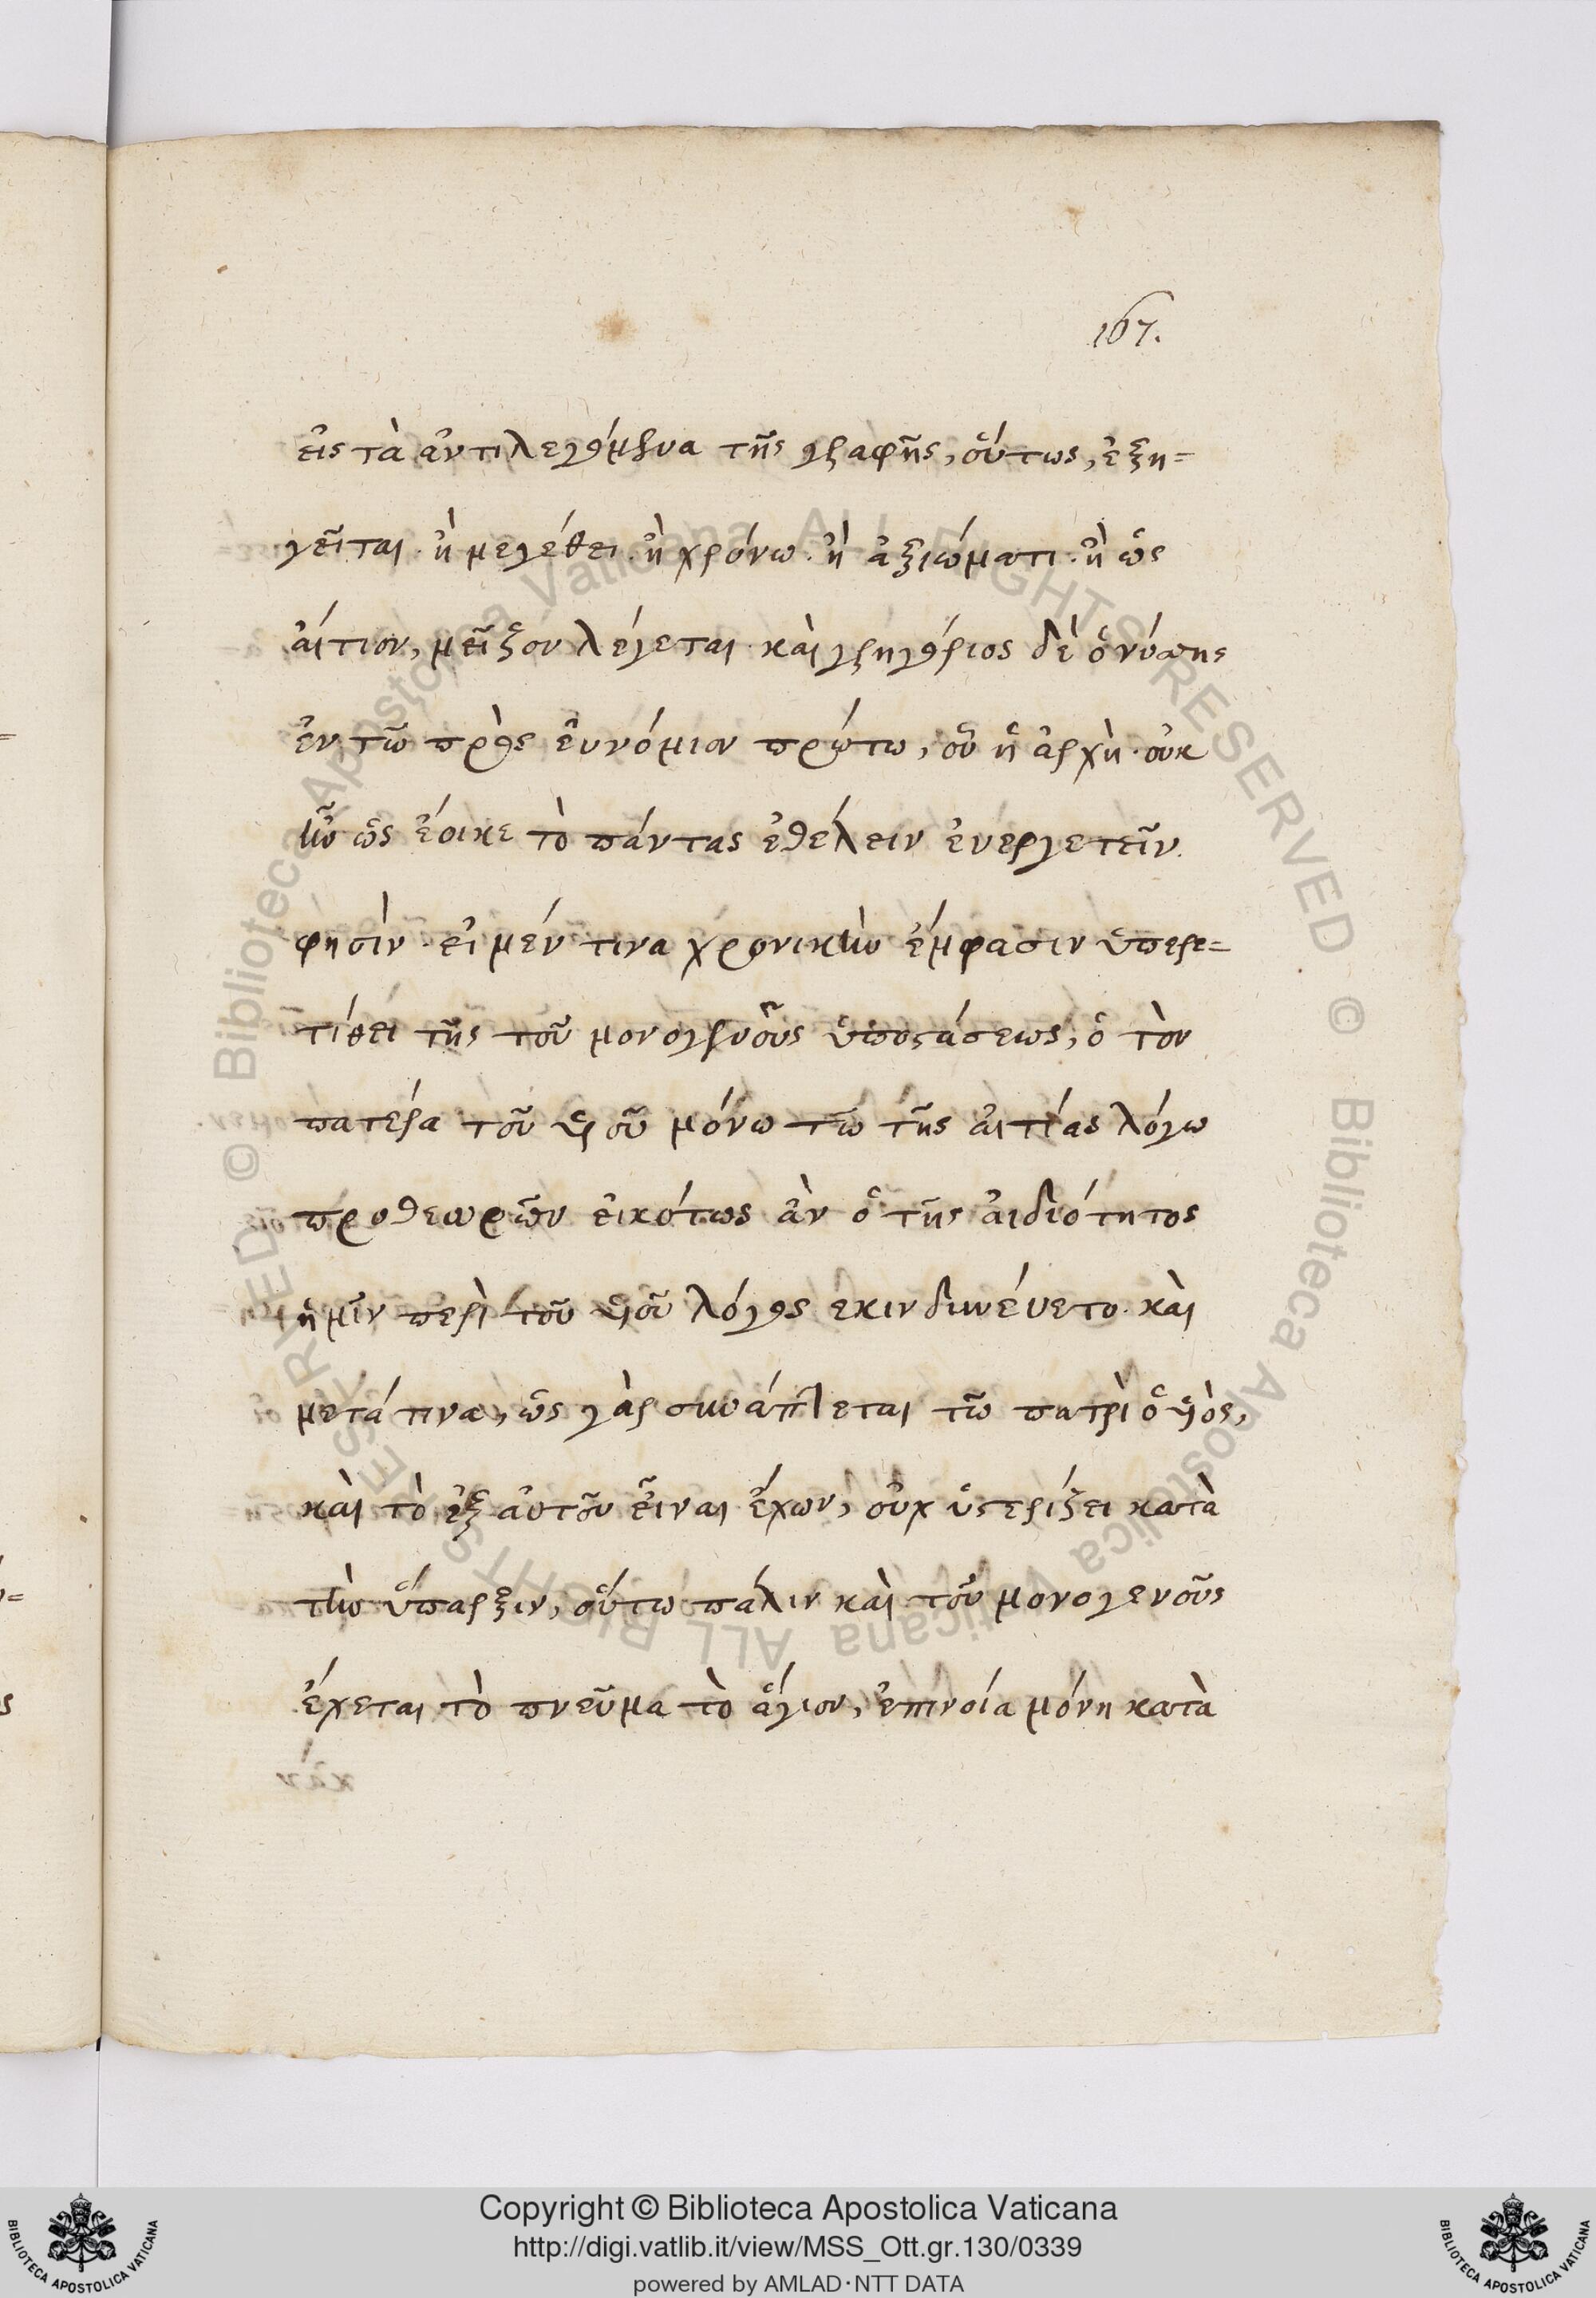 167.
εἰς τὰ ἀντιλεγόμενα τῆς γραφῆς, οὕτως, ἐξη=
γεῖται· ἢ μεγέθει· ἢ χρόνω· ἢ ἀξιώματι· ἢ ὡς
ἄιτιον, μεῖζον λέγεται· καὶ γρηγόριος δὲ ὁ νύσης
ἐν τῶ πρὸς ἐυνόμιον πρώτω, οὗ ἡ ἀρχὴ· οὐκ
ἦν ὡς ἔοικε τὸ πάντας ἐθέλειν ἐνεργετεῖν.
φησὶν· εἰ μέν τινα χρονικὴν ἔμφασιν ὑπερε=
τίθει τῆς τοῦ μονογενοῦς ὑποστάσεως, ὁ τὸν
πατέρα τοῦ υἱοῦ μόνω τῶ τῆς ἀιτίας λόγω
προθεωρῶν εἰκότως ἂν ὁ τῆς ἀιδιότητος
ἡμῖν περὶ τοῦ υἱοῦ λόγος εκινδυνέυετο· καὶ
μετά τινα, ὡς γὰρ συνάπτεται τῶ πατρὶ ὁ υἱὸς,
καὶ τὸ ἐξ ἀυτοῦ εἶναι ἔχων, οὐχ ὑστερίζει κατὰ
τὴν ὕπαρξιν, οὕτω πάλιν καὶ τοῦ μονογενοῦς
ἔχεται τὸ πνεῦμα τὸ ἅγιον, ἐπινοία μόνη κατὰ
© Biblioteca Apostolica Vaticana ALL RIGHTS RESERVED © Biblioteca Apostolica Vaticana ALL RIGHTS RESERVED
Copyright © Biblioteca Apostolica Vaticana
http://digi.vatlib.it/view/MSS_Ott.gr.130/0339
powered by AMLAD·NTT DATA
BIBLIOTECA APOSTOLICA VATICANA
BIBLIOTECA APOSTOLICA VATICANA